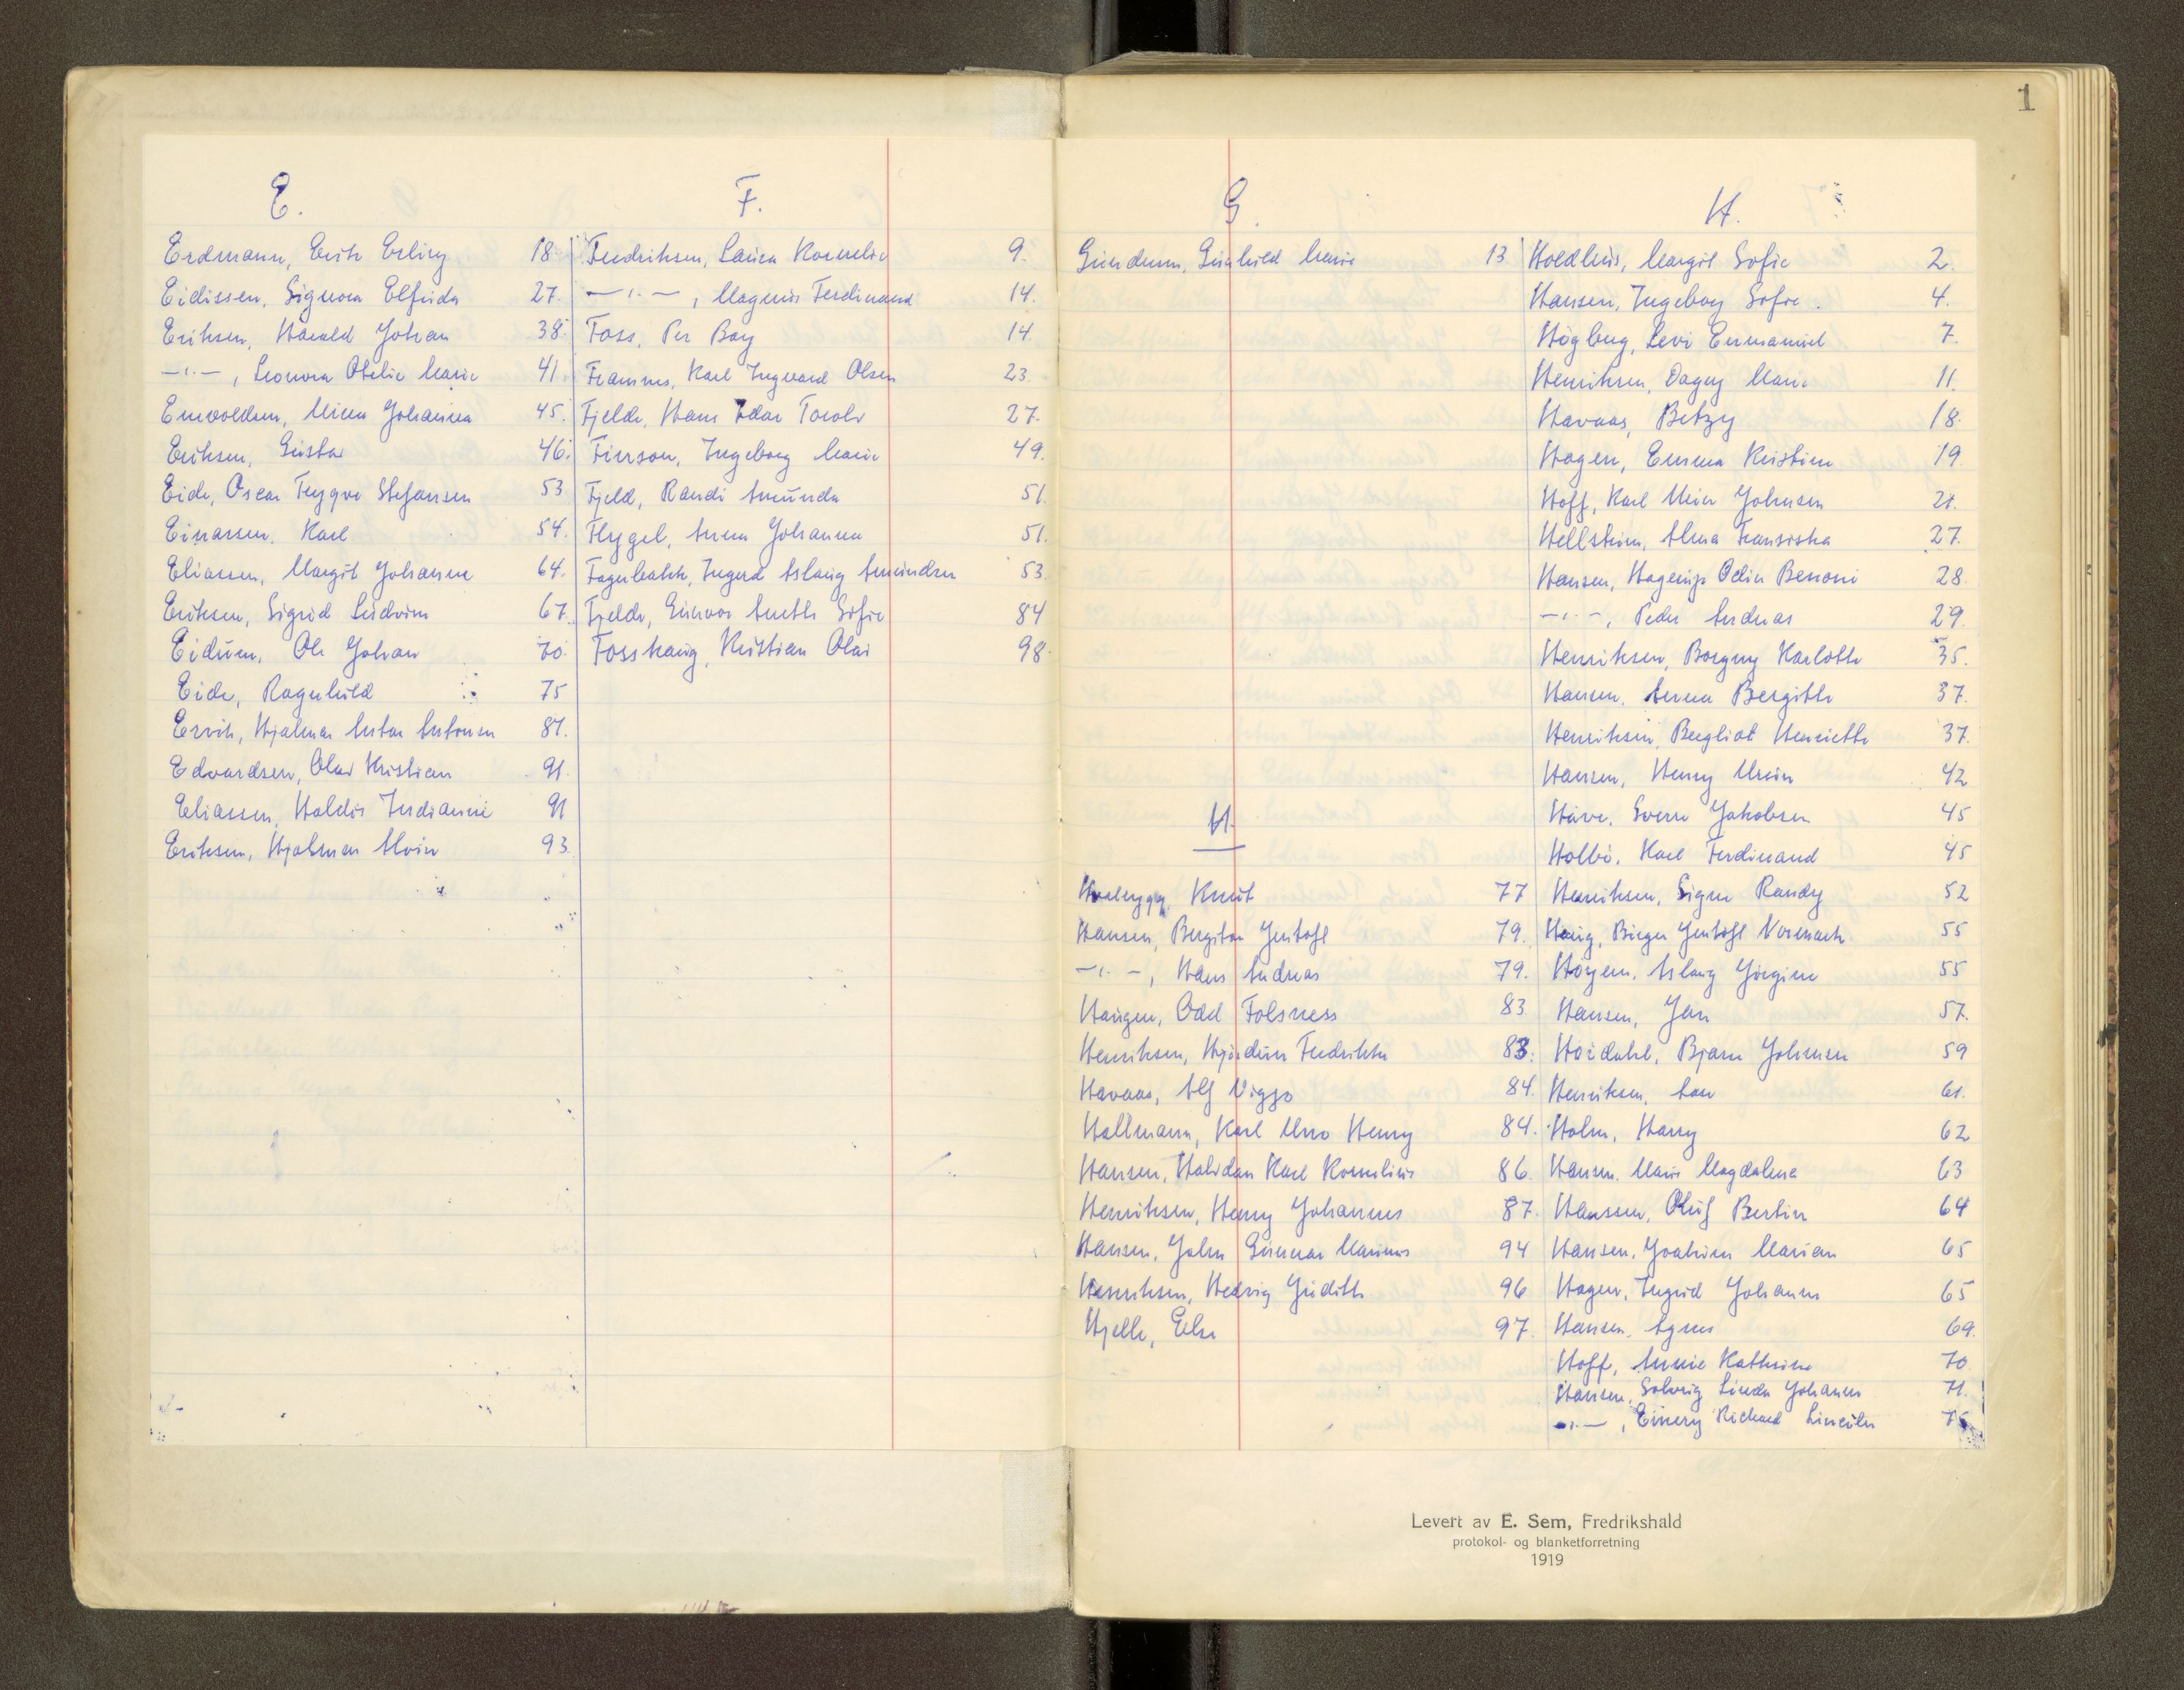 1
E.
Erdmann, Erik Erling 18
Eidissen, Signora Elfrida 27.
Eriksen, Harald Johan 38.
—"—, Leonora Otelie Marie 41.
Enevoldsen, Minna Johanna 45.
Eriksen, Gustav 46.
Eide, Oscar Trygve Stefansen 53
Einarsen, Karl 54.
Eliassen, Margit Johanne 64.
Eriksen, Sigrid Ludvine 67.
Eidum, Ole Johan 70.
Eide, Ragnhild 75
Ervik, Hjalmar Anton Antonsen 81.
Edvardsen, Olav Kristian 91.
Eliassen, Haldis Indianne 91
Eriksen, Hjalmar Alvin 93
F.
Fredriksen, Laura Kornelie 9.
—"—, Magnus Ferdinand 14.
Foss, Per Bay 14.
Framnes, Karl Ingvard Olsen 23.
Fjelde, Hans Edar Torolv 27.
Finson, Ingeborg Marie 49.
Fjeld, Randi Amunda 51.
Flygel, Anna Johanna 51.
Fagerbakk, Ingerd Aslaug Amundsen 53.
Fjelde, Gunvor Anette Sofie 84
Fosshaug, Kristian Olai 98.
G.
Gundersen, Gunhild Marie 13
H.
Hvalrygg, Knut 77
Hansen, Bergiton Gustafl 79.
—"—, Hans Andreas 79.
Haugen, Odd Folsness 83
Henriksen, Hjördun Fredrikke 83.
Havaas, Alf Viggo 84.
Hallmann, Karl Uno Henry 84.
Hansen, Halvdan Karl Kornelius 86.
Henriksen, Henry Johannes 87.
Hansen, John Gunnar Marinus 94
Henriksen, Hedvig Judith 96
Hjelle, Else 97.
H.
Hoedlius, Margit Sofie 2.
Hansen, Ingeborg Sofie. 4.
Högberg, Levi Emmanuel 7.
Henriksen, Dagny Marie 11.
Havaas, Betzy 18.
Hagen, Emma Kristine 19
Hoff, Karl Meier Johnsen 21.
Hellström, Alma Fransiska 27.
Hansen, Hagerup Odin Benoni 28.
—"—, Peder Andreas 29.
Henriksen, Borgny Karlotte 35.
Hansen, Anna Bergitte 37.
Henriksen, Bergliot Henriette 37.
Hansen, Henry Unin 42
Have, Sverre Jakobsen 45
Holbö, Karl Ferdinand 45
Henriksen, Signe Randy 52
Haug, Birger Gustafl Normark 55
Höyem, Aslaug Jörgine 55
Hansen, Jan 57.
Hoidahl, Bjarne Johnsen 59
Henriksen, Aase 61.
Holm, Harry 62
Hansen, Marie Magdalena 63
Hanssen, Oluf Bertin 64
Hansen, Joakim Marian 65
Hagen, Ingrid Johanne 65
Hansen, Agnes 69.
Hoff, Annie Kathrine 70
Hansen, Solveig Linda Johanne 71.
—"—, Einery Richard Lincoln 75
Levert av E. Sem, Fredrikshald
protokol- og blanketforretning
1919